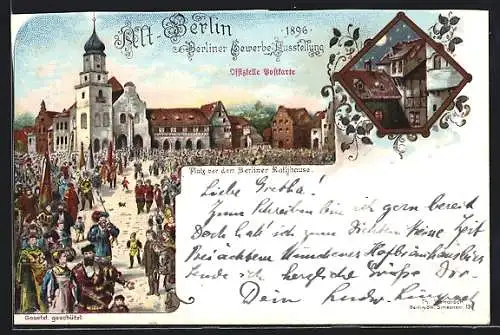 Alt-Berlin
1896
Berliner Gewerbe-Ausstellung
Offizielle Postkarte
Platz vor dem Berliner Rathhause.
Liebe Gretha!
Zum Schreiben bin ich gern bereit
Doch hab' ich zum Dichten keine Zeit
Bei ächtem Münchener Hofbräuhausbier
Sende ich herzliche Grüsse Dir.
Dein
Gesetzl. geschützt